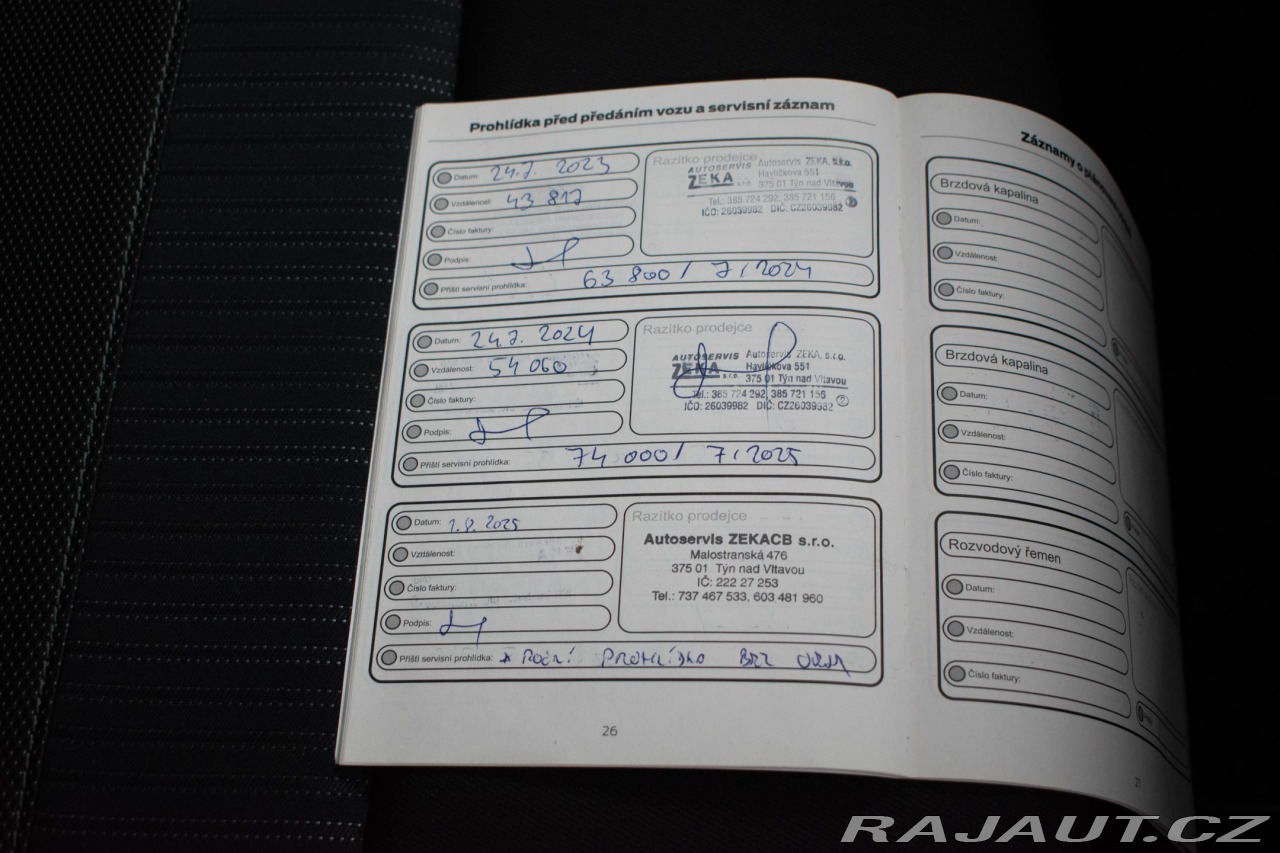 Prohlídka před předáním vozu a servisní záznam
Datum: 24.7. 2023
Vzdálenost: 43 817
Číslo faktury:
Podpis:
Příští servisní prohlídka: 63 800 / 7 / 2024
Razítko prodejce
AUTOSERVIS ZEKA s.r.o.
Autoservis ZEKA, s.r.o.
Havlíčkova 551
375 01 Týn nad Vltavou
Tel.: 385 724 292, 385 721 156
IČO: 26039982 DIČ: CZ26039982
Datum: 24.7. 2024
Vzdálenost: 54 060
Číslo faktury:
Podpis:
Příští servisní prohlídka: 74 000 / 7 / 2025
Razítko prodejce
AUTOSERVIS ZEKA s.r.o.
Autoservis ZEKA, s.r.o.
Havlíčkova 551
375 01 Týn nad Vltavou
Tel.: 385 724 292, 385 721 156
IČO: 26039982 DIČ: CZ26039982 2
Datum: 1.8. 2025
Vzdálenost:
Číslo faktury:
Podpis:
Příští servisní prohlídka: * ROČNÍ PROHLÍDKA
Razítko prodejce
Autoservis ZEKACB s.r.o.
Malostranská 476
375 01 Týn nad Vltavou
IČ: 222 27 253
Tel.: 737 467 533, 603 481 960
26
Záznamy o
Brzdová kapalina
Datum:
Vzdálenost:
Číslo faktury:
Brzdová kapalina
Datum:
Vzdálenost:
Číslo faktury:
Rozvodový řemen
Datum:
Vzdálenost:
Číslo faktury:
27
RAJAUT.CZ